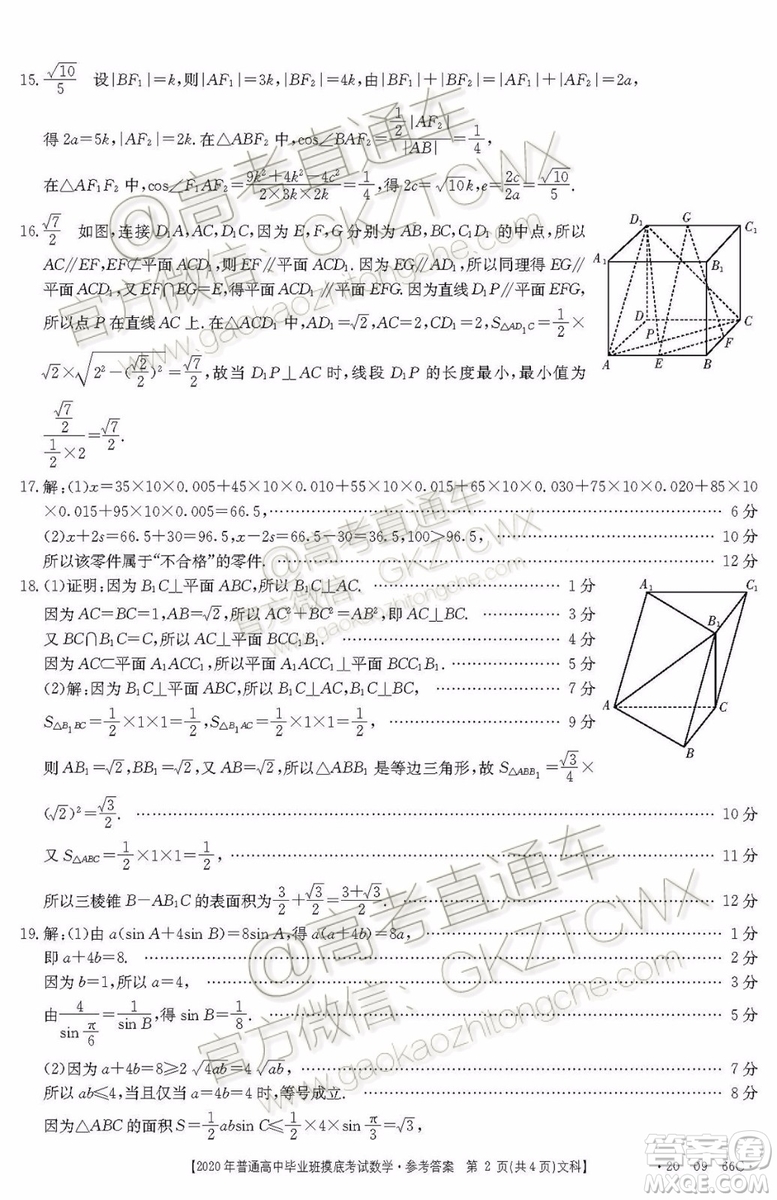 15. √10/5 设|BF₁|=k,则|AF₁|=3k,|BF₂|=4k,由|BF₁|+|BF₂|=|AF₁|+|AF₂|=2a,
得 2a=5k,|AF₂|=2k.在△ABF₂ 中,cos∠BAF₂=(1/2|AF₂|)/|AB|=1/4,
在△AF₁F₂ 中,cos∠F₁AF₂=(9k²+4k²-4c²)/(2×3k×2k)=1/4,得 2c=√10k,e=2c/2a=√10/5.
16. √7/2 如图,连接 D₁A,AC,D₁C,因为 E,F,G 分别为 AB,BC,C₁D₁ 的中点,所以
AC∥EF,EF⊄平面 ACD₁,则 EF∥平面 ACD₁.因为 EG∥AD₁,所以同理得 EG∥
平面 ACD₁,又 EF∩EG=E,得平面 ACD₁∥平面 EFG.因为直线 D₁P∥平面 EFG,
所以点 P 在直线 AC 上.在△ACD₁ 中,AD₁=√2,AC=2,CD₁=2,S△AD₁C=1/2×
√2×√(2²-(√2/2)²)=√7/2,故当 D₁P⊥AC 时,线段 D₁P 的长度最小,最小值为
(√7/2)/(1/2×2)=√7/2.
D₁ G C₁
A₁ B₁
D C
P F
A E B
17. 解:(1)x=35×10×0.005+45×10×0.010+55×10×0.015+65×10×0.030+75×10×0.020+85×10
×0.015+95×10×0.005=66.5, 6 分
(2)x+2s=66.5+30=96.5,x-2s=66.5-30=36.5,100>96.5, 10 分
所以该零件属于“不合格”的零件. 12 分
18. (1)证明:因为 B₁C⊥平面 ABC,所以 B₁C⊥AC. 1 分
因为 AC=BC=1,AB=√2,所以 AC²+BC²=AB²,即 AC⊥BC. 3 分
又 BC∩B₁C=C,所以 AC⊥平面 BCC₁B₁. 4 分
因为 AC⊂平面 A₁ACC₁,所以平面 A₁ACC₁⊥平面 BCC₁B₁. 5 分
(2)解:因为 B₁C⊥平面 ABC,所以 B₁C⊥AC,B₁C⊥BC, 7 分
S△B₁BC=1/2×1×1=1/2,S△B₁AC=1/2×1×1=1/2, 9 分
则 AB₁=√2,BB₁=√2,又 AB=√2,所以△ABB₁ 是等边三角形,故 S△ABB₁=√3/4×
(√2)²=√3/2. 10 分
又 S△ABC=1/2×1×1=1/2, 11 分
所以三棱锥 B-AB₁C 的表面积为 3/2+√3/2=(3+√3)/2. 12 分
A₁ C₁
B₁
A C
B
19. 解:(1)由 a(sin A+4sin B)=8sin A,得 a(a+4b)=8a, 1 分
即 a+4b=8. 2 分
因为 b=1,所以 a=4, 3 分
由 4/sin(π/6)=1/sin B,得 sin B=1/8. 5 分
(2)因为 a+4b=8≥2√4ab=4√ab, 7 分
所以 ab≤4,当且仅当 a=4b=4 时,等号成立. 8 分
因为△ABC 的面积 S=1/2absinC≤1/2×4×sin π/3=√3,
【2020 年普通高中毕业班摸底考试数学·参考答案 第 2 页(共 4 页)文科】
·20-09-66C·
@高考直通车
官方微信:GKZTCWX
www.gaokaozhitongche.com
@高考直通车
官方微信:GKZTCWX
www.gaokaozhitongche.com
@高考直通车
官方微信:GKZTCWX
www.gaokaozhitongche.com